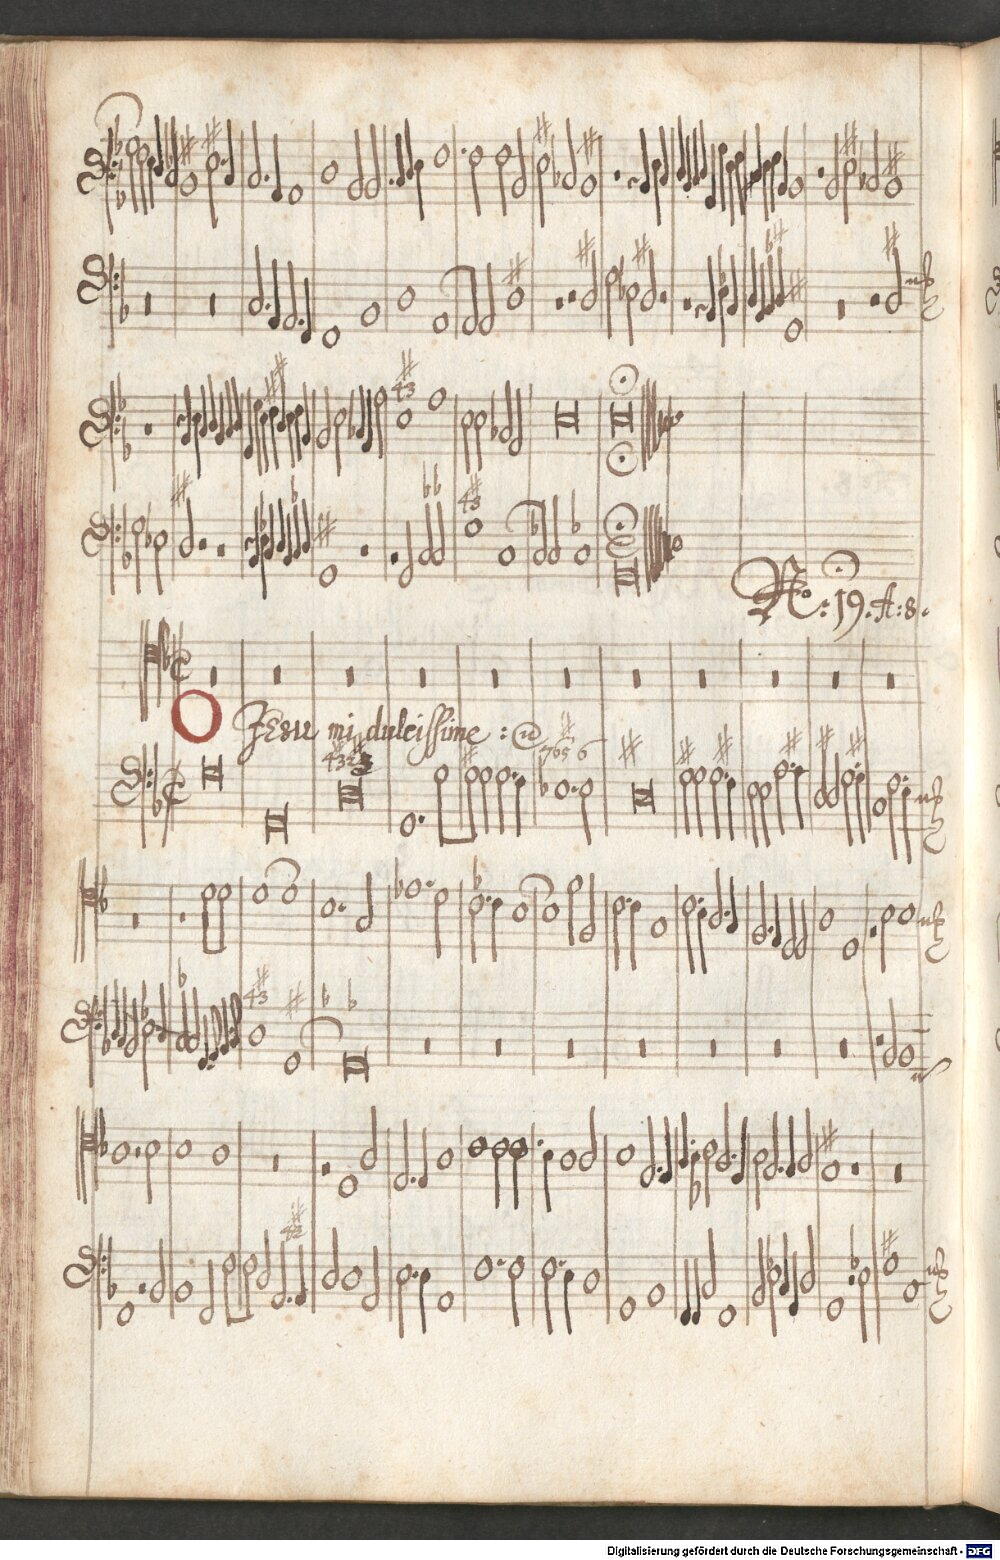 No: 19. A: 8.
O JESU mi dulcissime :
Digitalisierung gefördert durch die Deutsche Forschungsgemeinschaft - DFG